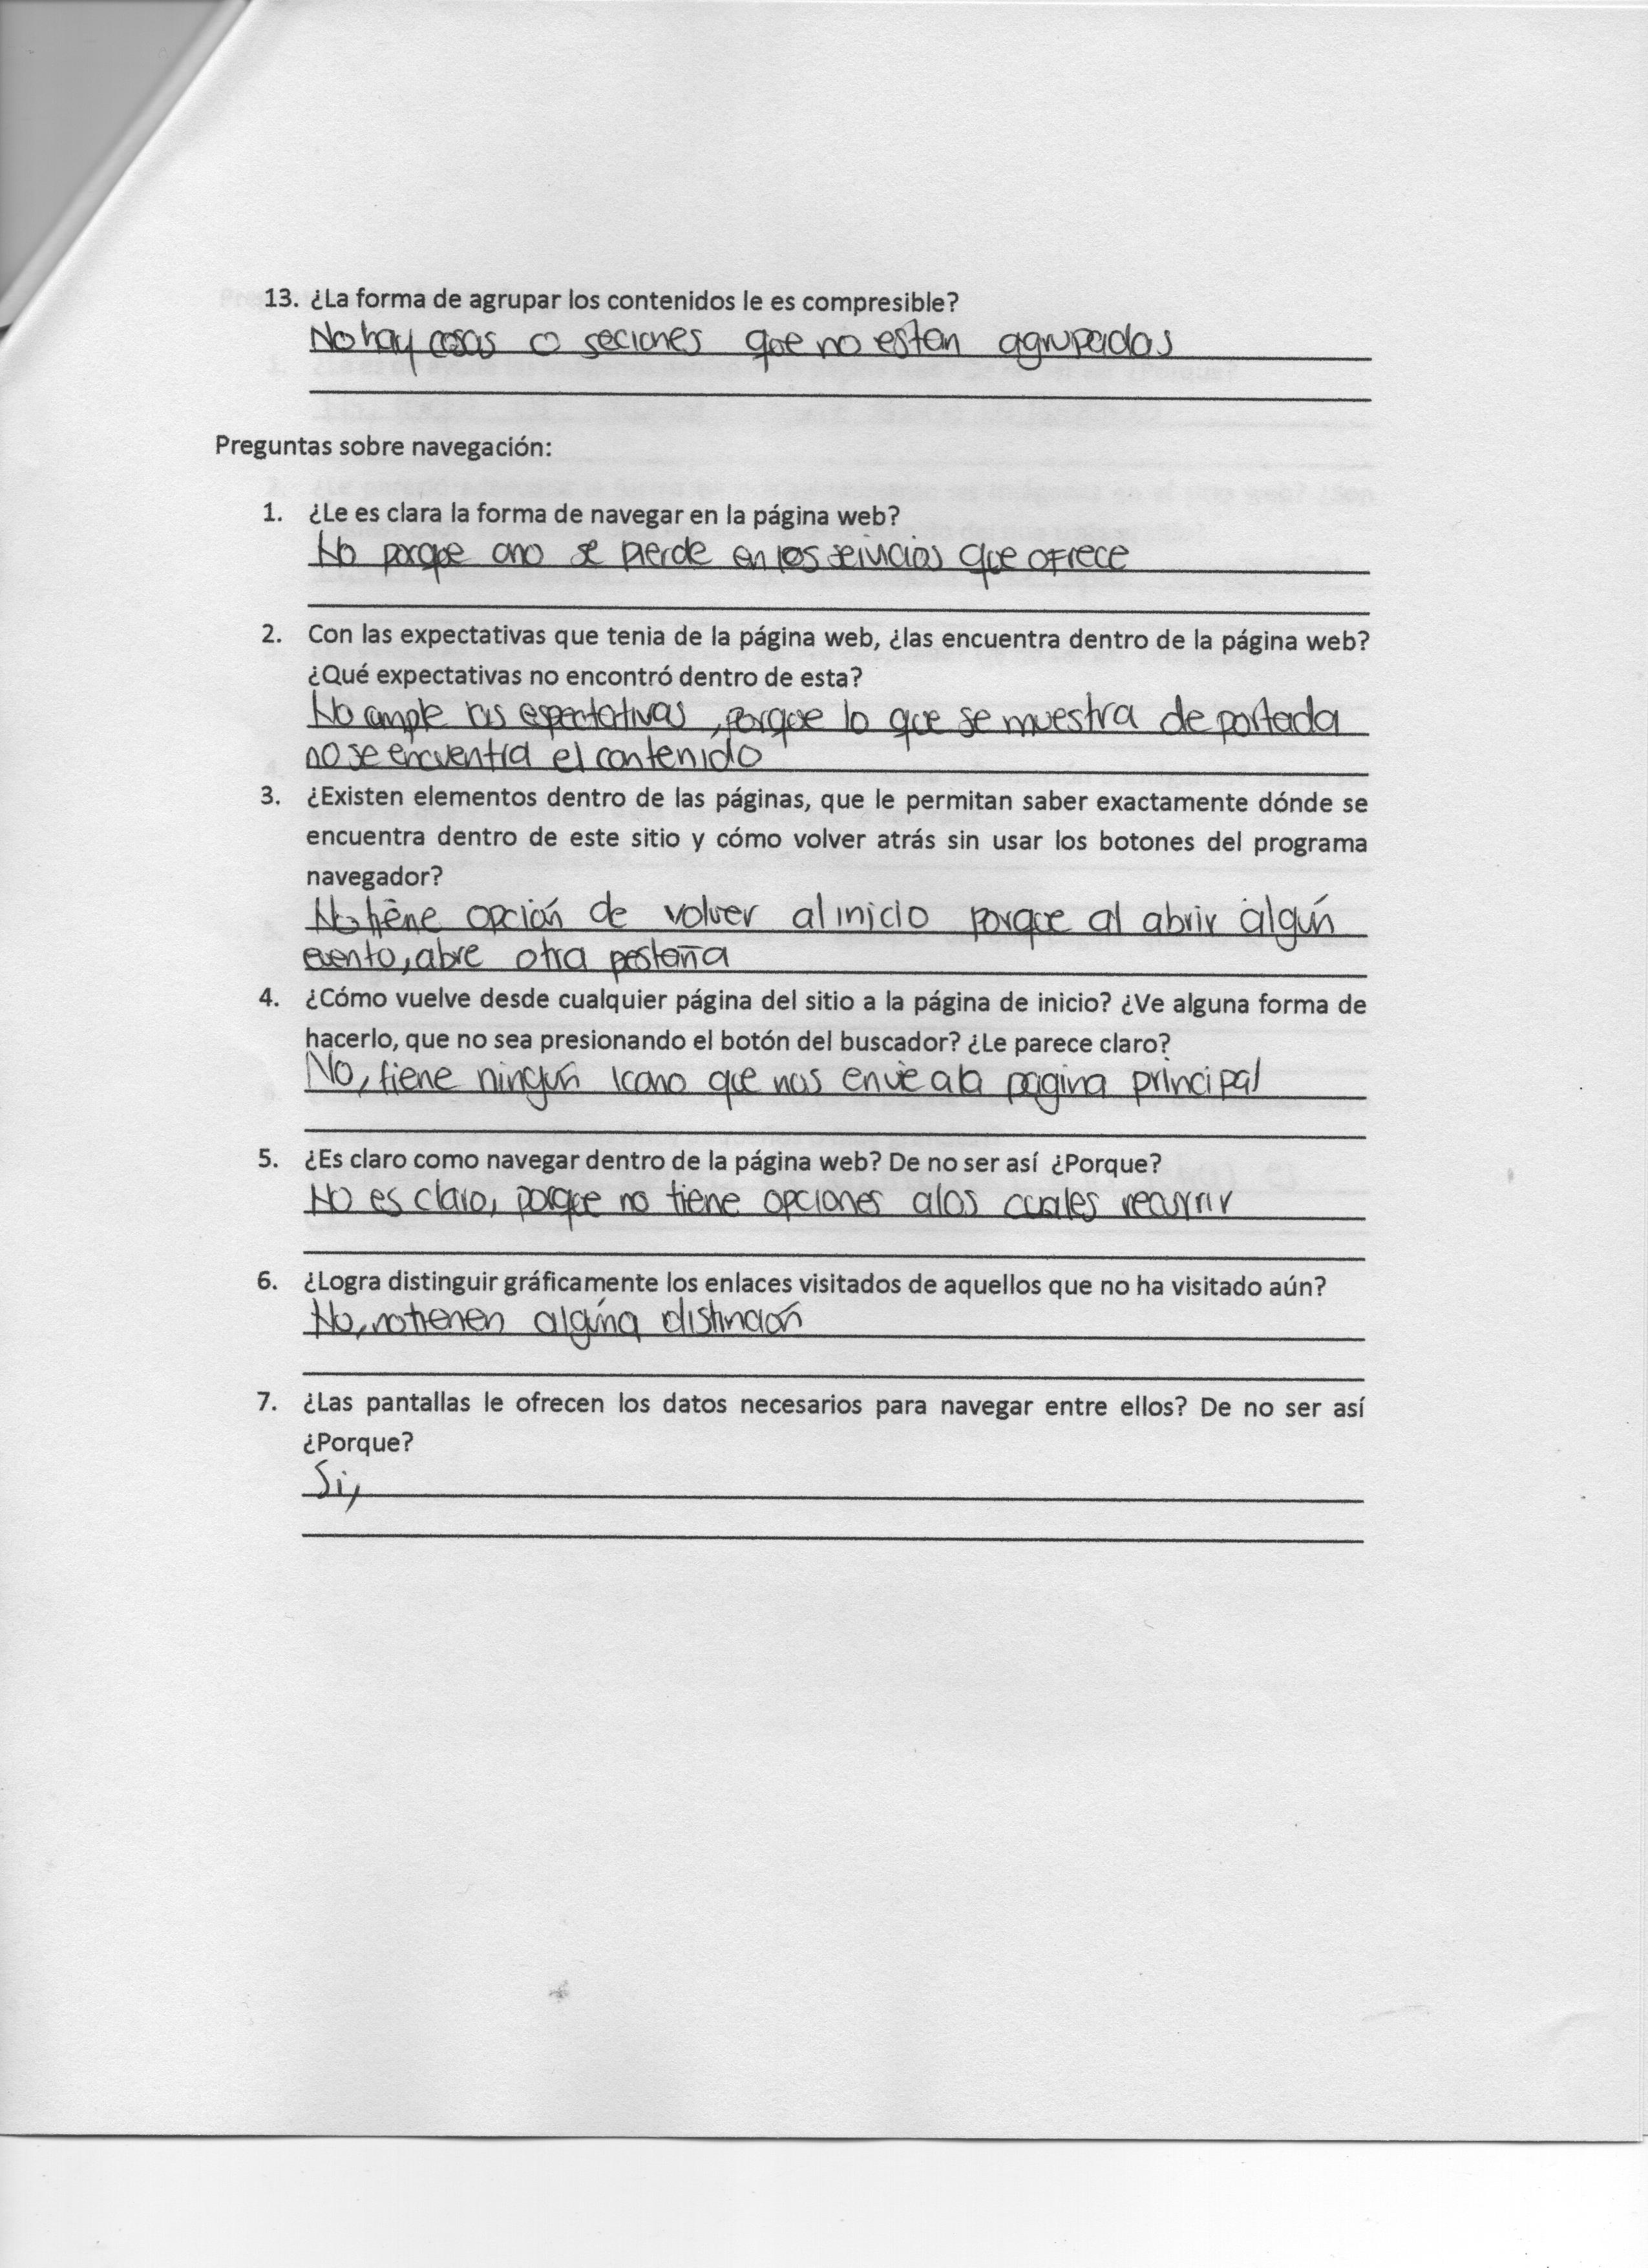 13. ¿La forma de agrupar los contenidos le es compresible?
No hay cosas o seciones que no estan agrupadas
Preguntas sobre navegación:
1. ¿Le es clara la forma de navegar en la página web?
No porque uno se pierde en los servicios que ofrece
2. Con las expectativas que tenia de la página web, ¿las encuentra dentro de la página web?
¿Qué expectativas no encontró dentro de esta?
No cumple las espectativas, porque lo que se muestra de portada
no se encuentra el contenido
3. ¿Existen elementos dentro de las páginas, que le permitan saber exactamente dónde se
encuentra dentro de este sitio y cómo volver atrás sin usar los botones del programa
navegador?
No tiene opción de volver al inicio porque al abrir algún
evento, abre otra pestaña
4. ¿Cómo vuelve desde cualquier página del sitio a la página de inicio? ¿Ve alguna forma de
hacerlo, que no sea presionando el botón del buscador? ¿Le parece claro?
No, tiene ningún icono que nos envie a la pagina principal
5. ¿Es claro como navegar dentro de la página web? De no ser así ¿Porque?
No es claro, porque no tiene opciones a los cuales recurrir
6. ¿Logra distinguir gráficamente los enlaces visitados de aquellos que no ha visitado aún?
No, no tienen algúna distinción
7. ¿Las pantallas le ofrecen los datos necesarios para navegar entre ellos? De no ser así
¿Porque?
Si,